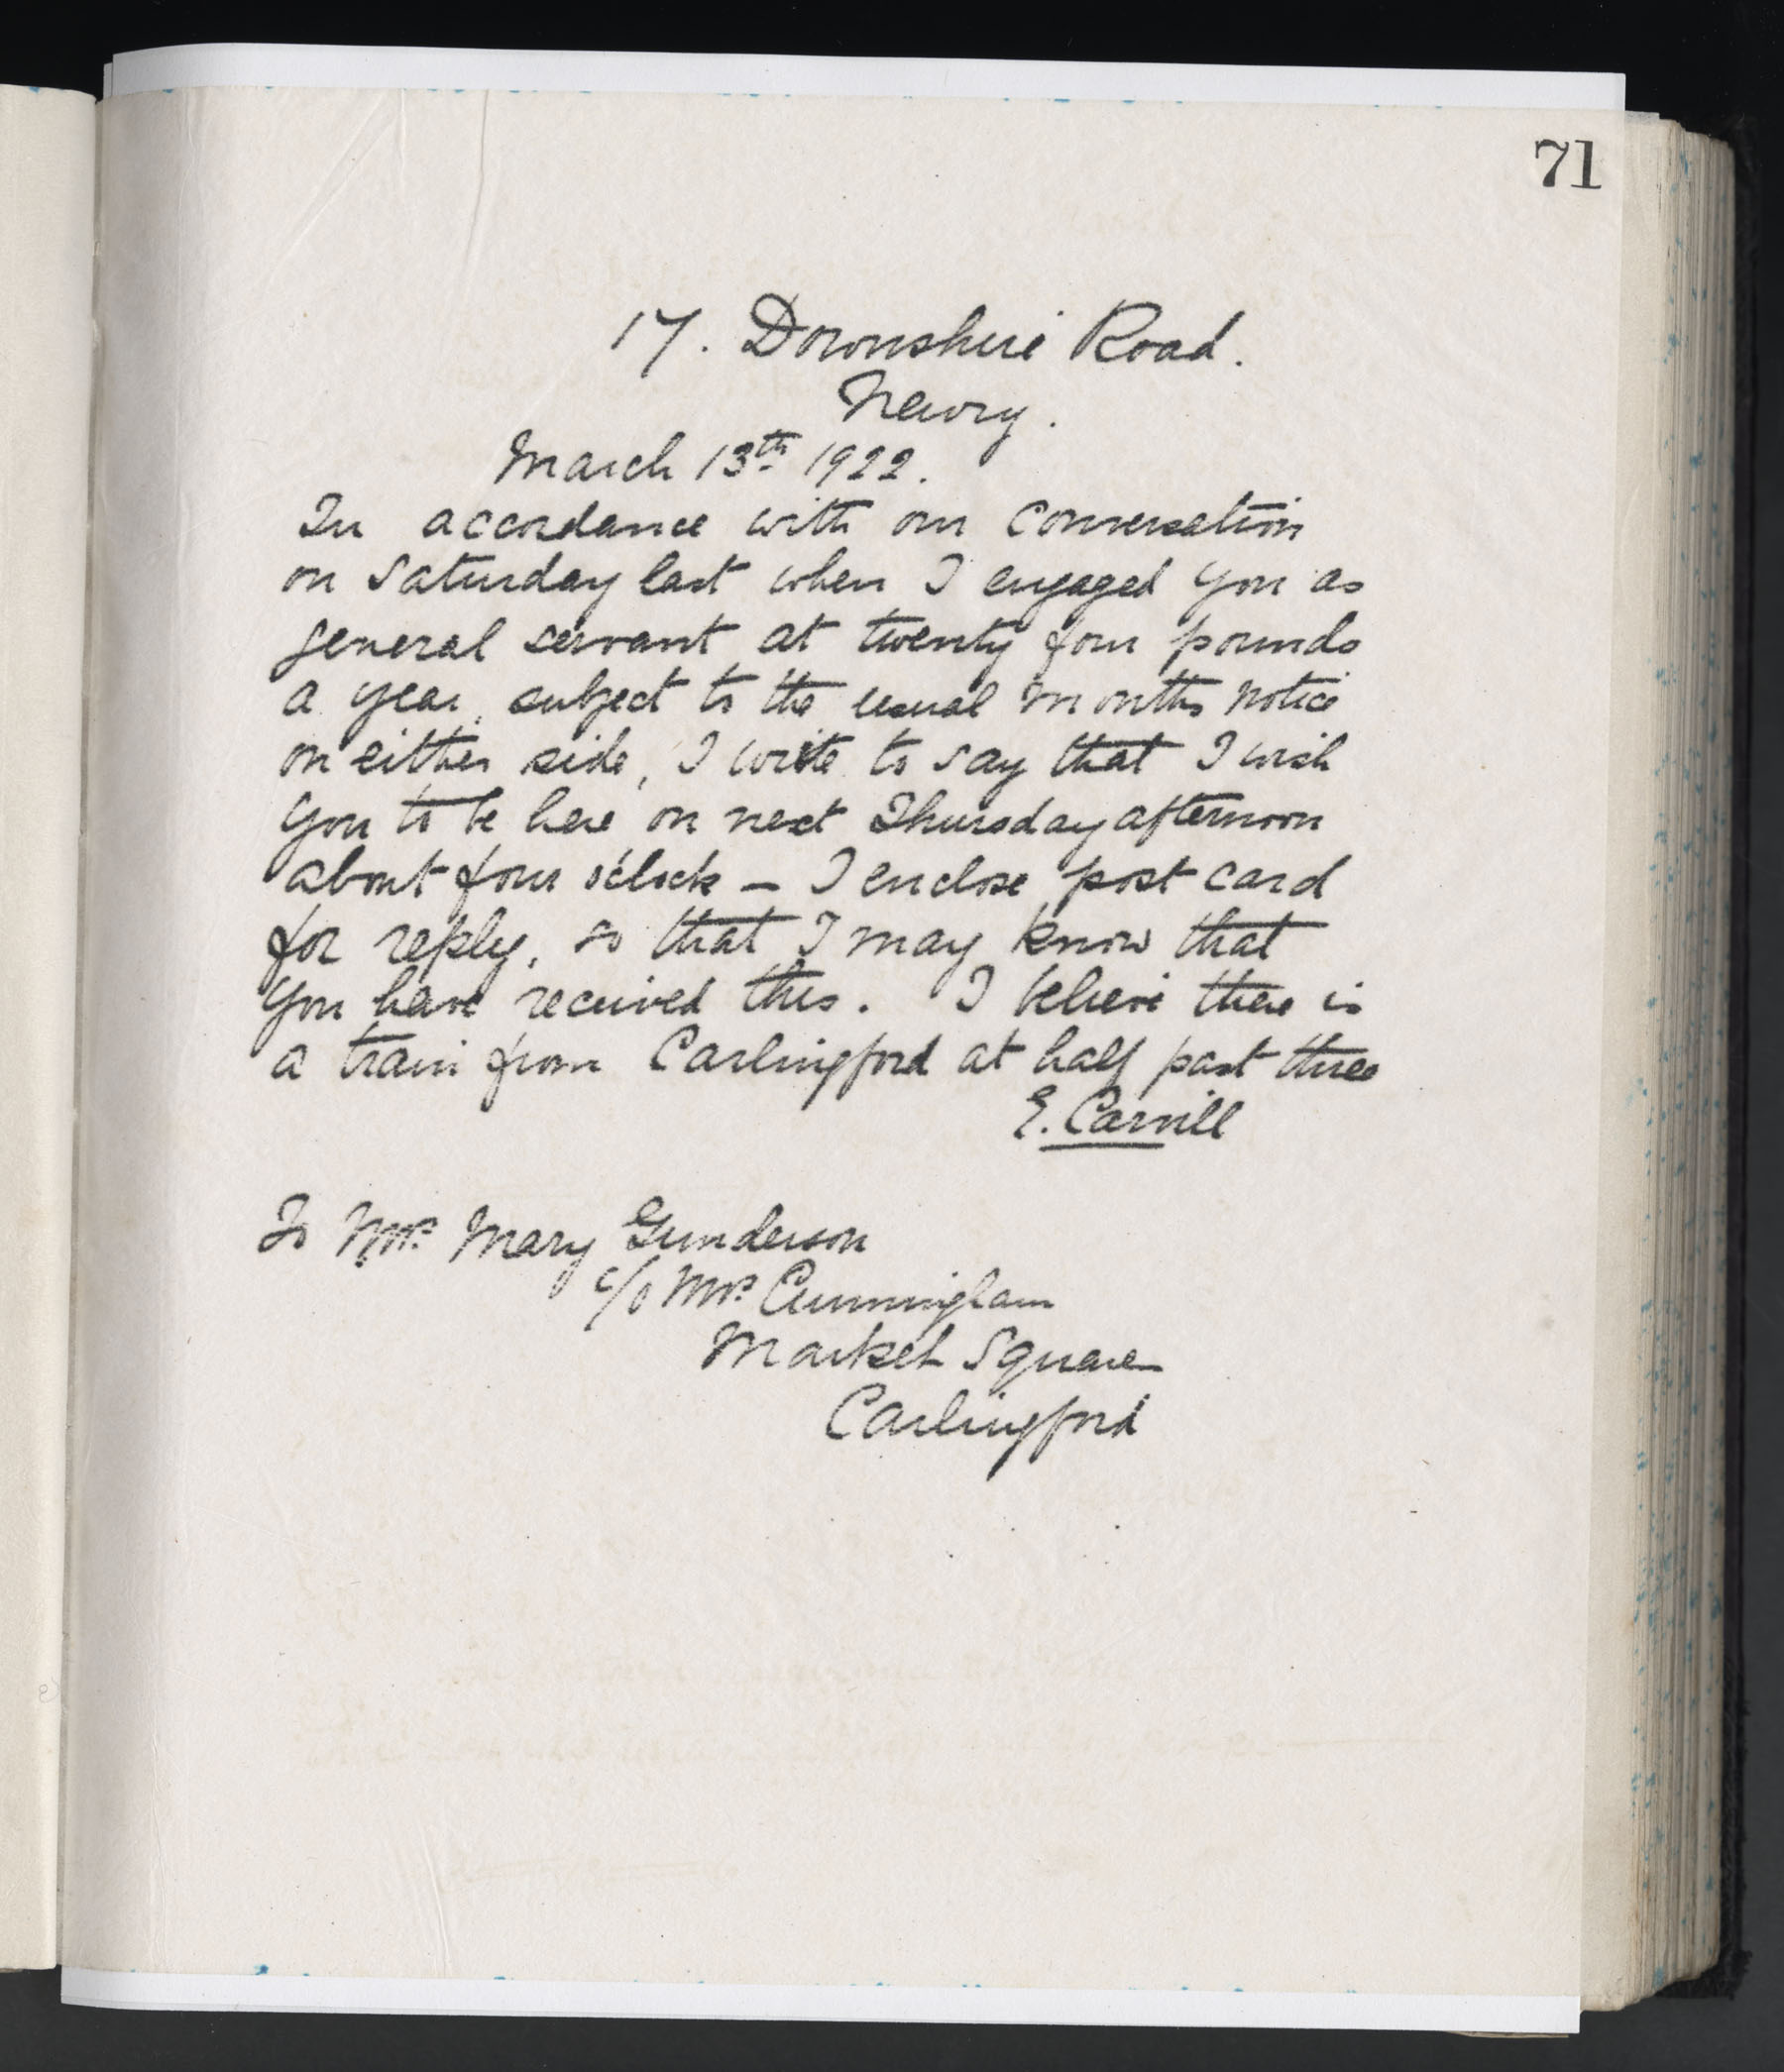 71
17. Downshire Road.
Newry.
March 13th 1922.
In accordance with our conversation
on Saturday last when I engaged you as
general servant at twenty four pounds
a year, subject to the usual months notice
on either side, I write to say that I wish
you to be here on next Thursday afternoon
about four o'clock – I enclose post card
for reply, so that I may know that
you have received this. I believe there is
a train from Carlingford at half past three
E. Carvill
To Mrs. Mary Gunderson
c/o Mrs. Cunningham
Market Square
Carlingford